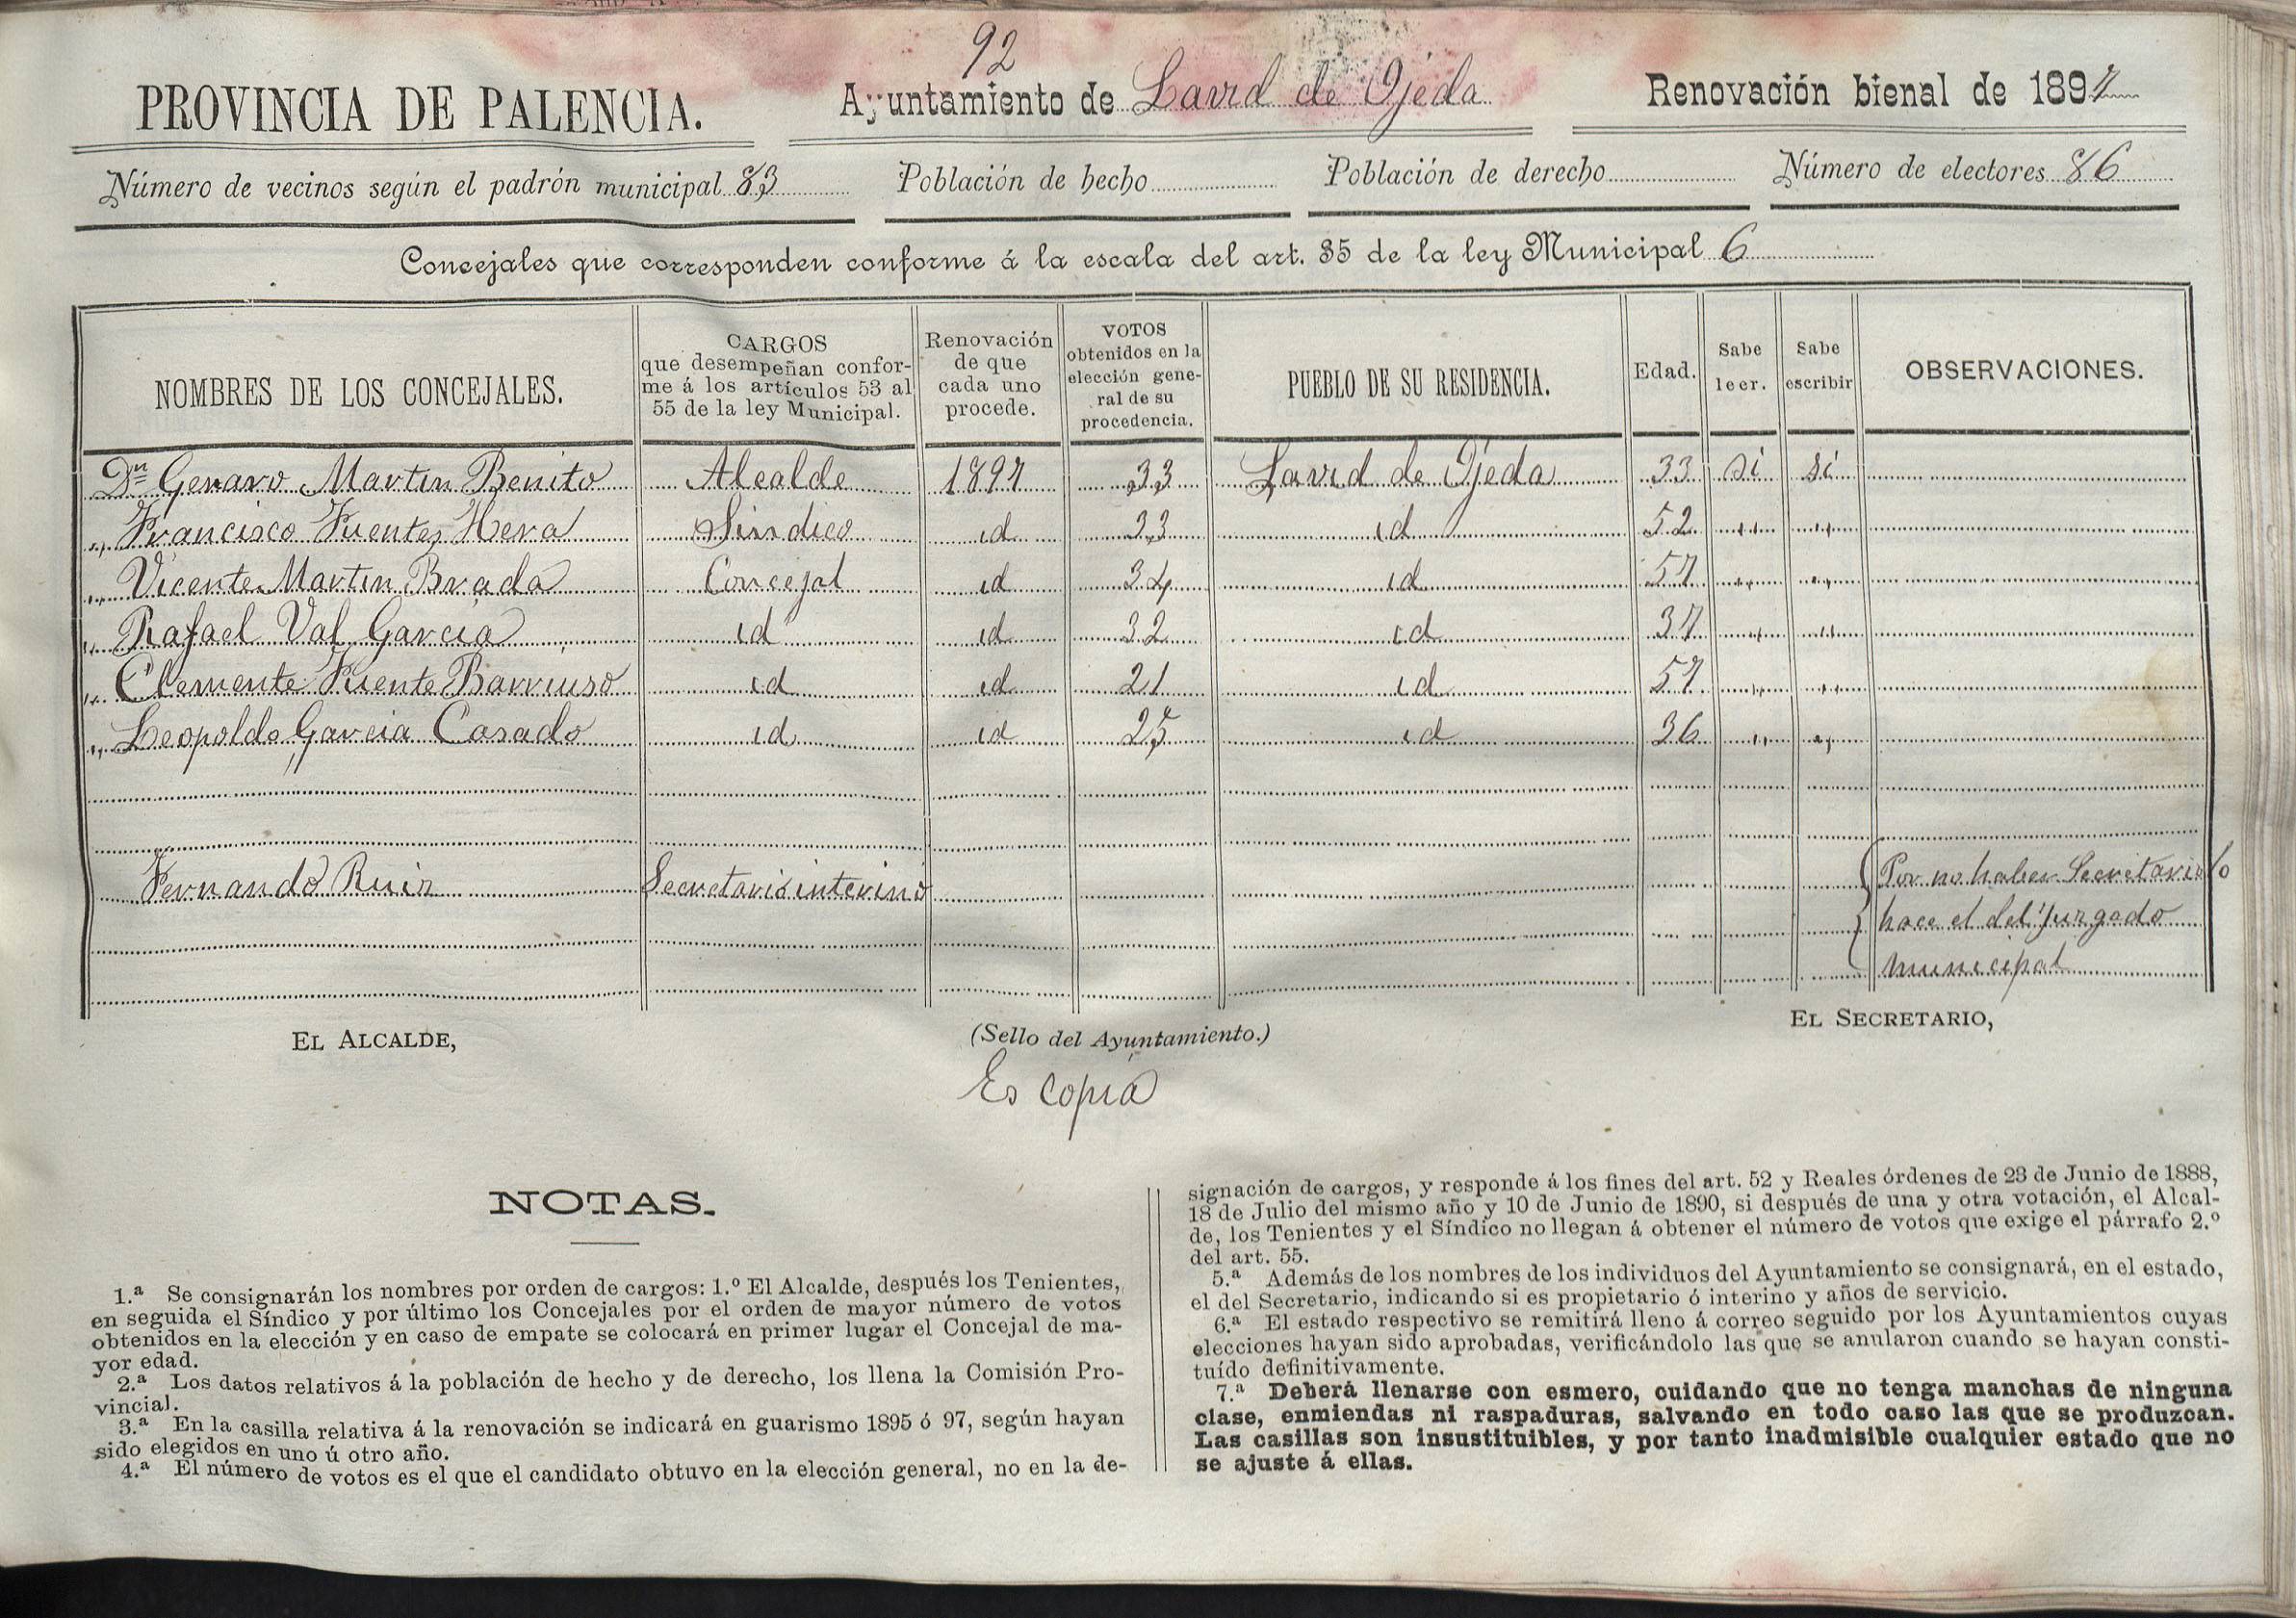 92
PROVINCIA DE PALENCIA.
Ayuntamiento de Lavid de Ojeda
Renovación bienal de 1897
Número de vecinos según el padrón municipal 83
Población de hecho
Población de derecho
Número de electores 86
Concejales que corresponden conforme á la escala del art. 35 de la ley Municipal 6
NOMBRES DE LOS CONCEJALES.
CARGOS
que desempeñan confor-
me á los artículos 53 al
55 de la ley Municipal.
Renovación
de que
cada uno
procede.
VOTOS
obtenidos en la
elección gene-
ral de su
procedencia.
PUEBLO DE SU RESIDENCIA.
Edad.
Sabe
leer.
Sabe
escribir
OBSERVACIONES.
Dn Genaro Martin Benito Alcalde 1897 33 Lavid de Ojeda 33 si si
" Francisco Fuentes Hera Sindico id 33 id 52 " "
" Vicente Martin Brada Concejal id 34 id 57 " "
" Rafael Val Garcia id id 32 id 37 " "
" Clemente Fuente Barriuso id id 21 id 57 " "
" Leopoldo Garcia Casado id id 25 id 36 " "
Fernando Ruiz Secretario interino Por no haber Secretario lo
hace el del Juzgado
municipal
EL ALCALDE,
(Sello del Ayuntamiento.)
EL SECRETARIO,
Es copia
NOTAS.
1.ª Se consignarán los nombres por orden de cargos: 1.º El Alcalde, después los Tenientes,
en seguida el Síndico y por último los Concejales por el orden de mayor número de votos
obtenidos en la elección y en caso de empate se colocará en primer lugar el Concejal de ma-
yor edad.
2.ª Los datos relativos á la población de hecho y de derecho, los llena la Comisión Pro-
vincial.
3.ª En la casilla relativa á la renovación se indicará en guarismo 1895 ó 97, según hayan
sido elegidos en uno ú otro año.
4.ª El número de votos es el que el candidato obtuvo en la elección general, no en la de-
signación de cargos, y responde á los fines del art. 52 y Reales órdenes de 23 de Junio de 1888,
18 de Julio del mismo año y 10 de Junio de 1890, si después de una y otra votación, el Alcal-
de, los Tenientes y el Síndico no llegan á obtener el número de votos que exige el párrafo 2.º
del art. 55.
5.ª Además de los nombres de los individuos del Ayuntamiento se consignará, en el estado,
el del Secretario, indicando si es propietario ó interino y años de servicio.
6.ª El estado respectivo se remitirá lleno á correo seguido por los Ayuntamientos cuyas
elecciones hayan sido aprobadas, verificándolo las que se anularon cuando se hayan consti-
tuído definitivamente.
7.ª Deberá llenarse con esmero, cuidando que no tenga manchas de ninguna
clase, enmiendas ni raspaduras, salvando en todo caso las que se produzcan.
Las casillas son insustituibles, y por tanto inadmisible cualquier estado que no
se ajuste á ellas.